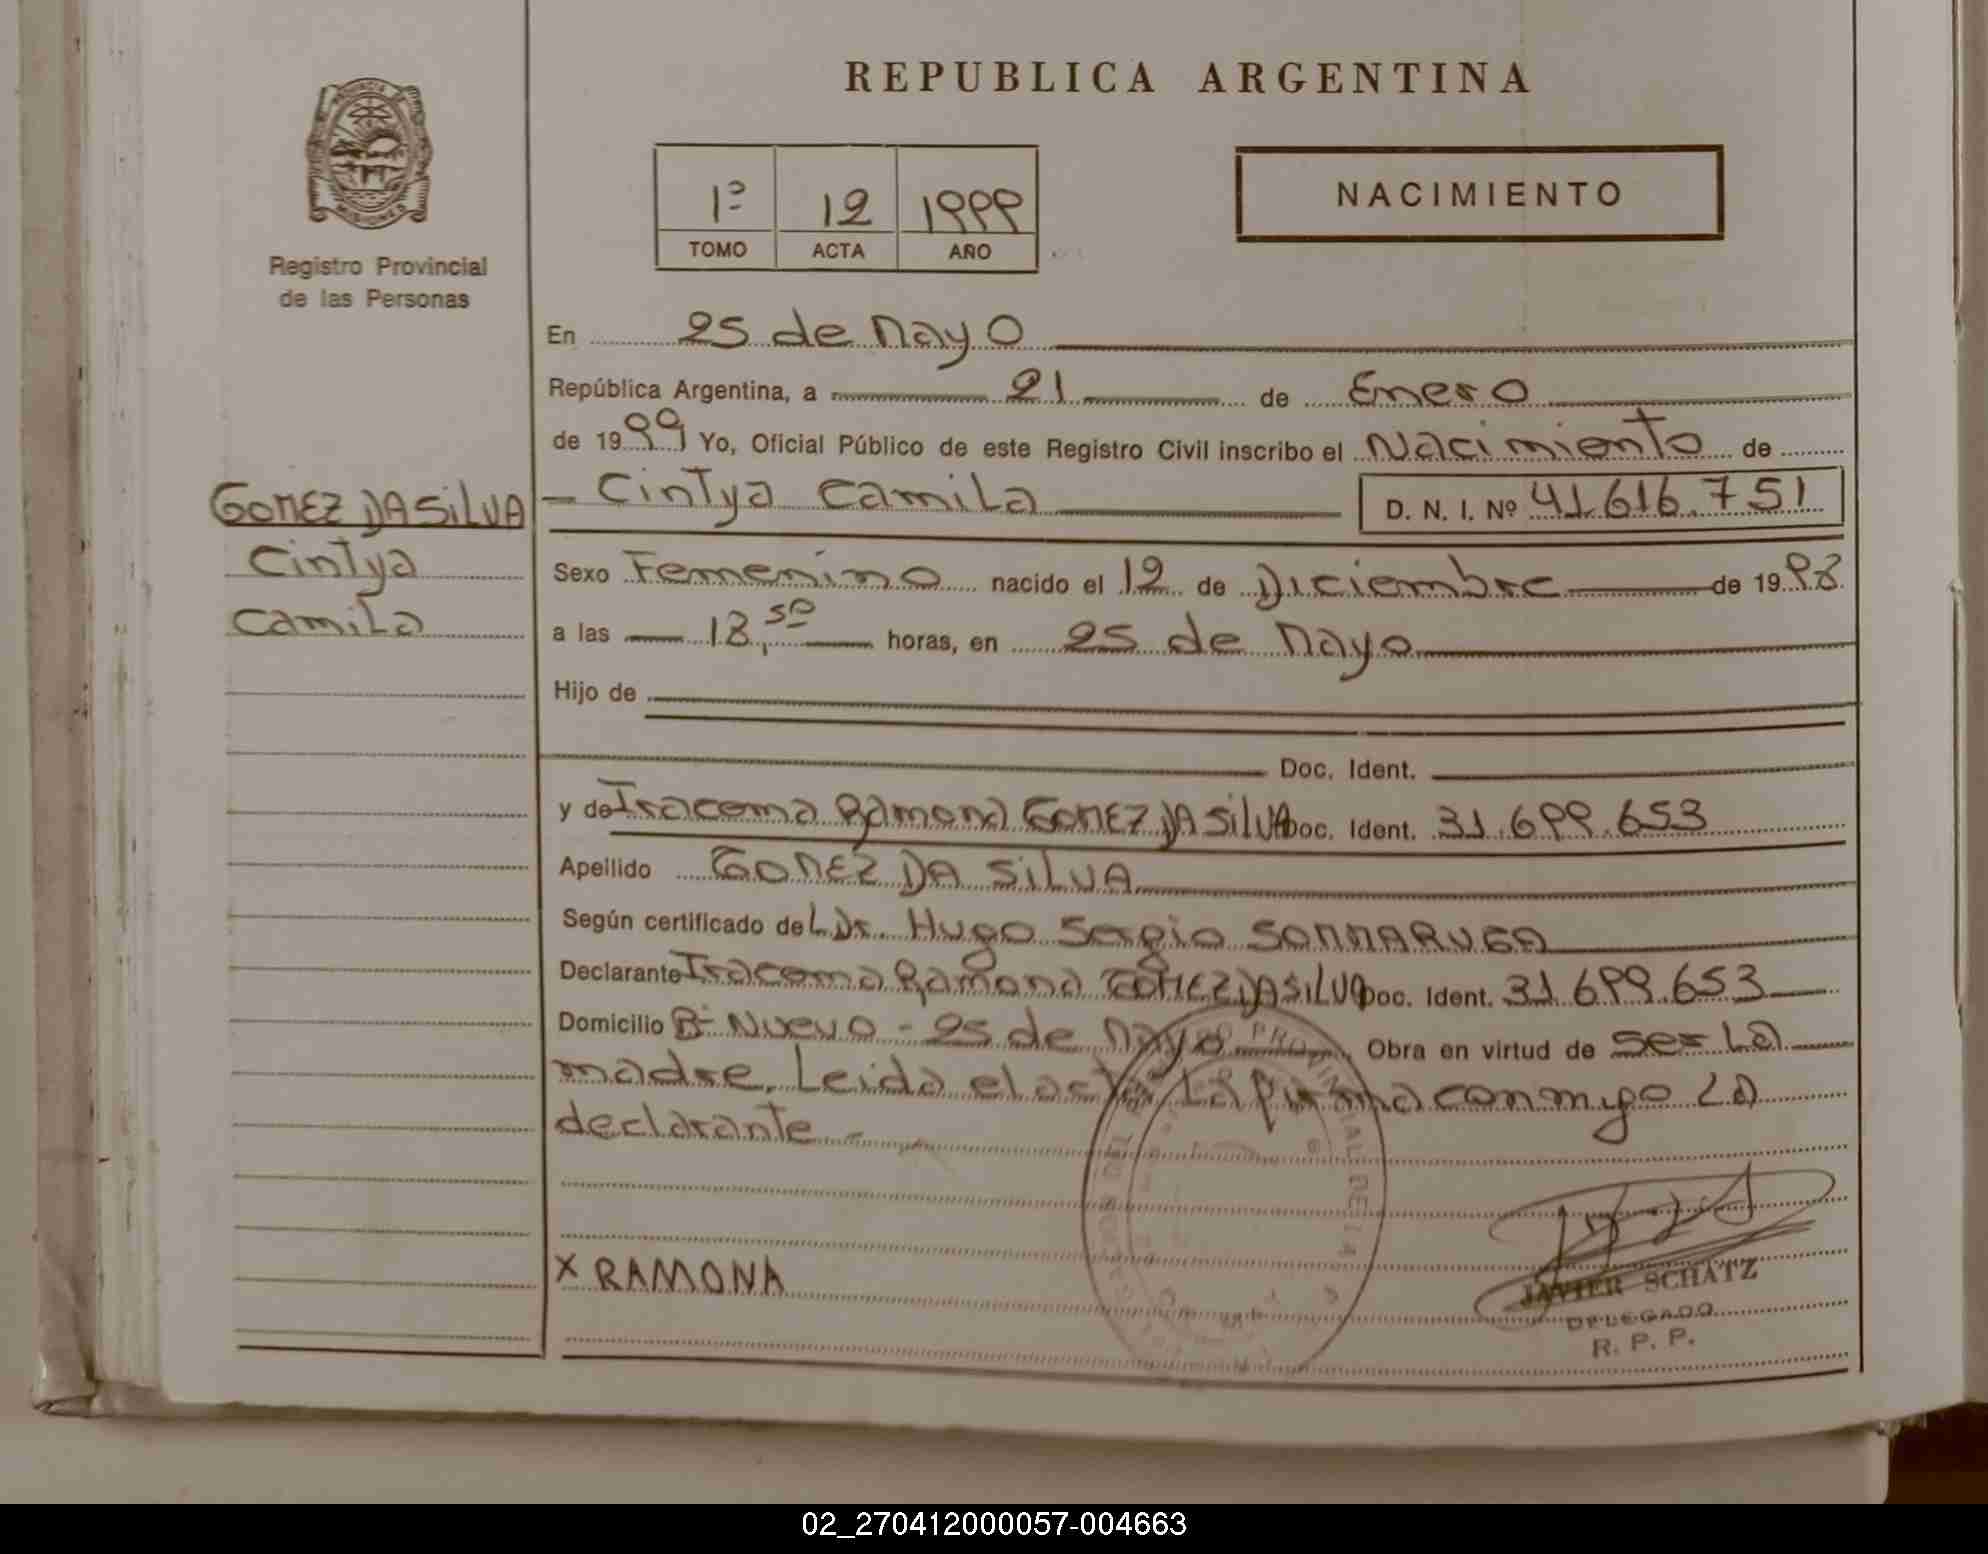 REPUBLICA ARGENTINA
PROVINCIA
MISIONES
Registro Provincial
de las Personas
1º 12 1999
TOMO ACTA AÑO
NACIMIENTO
En 25 de Mayo
República Argentina, a 21 de Enero
de 1999 Yo, Oficial Público de este Registro Civil inscribo el Nacimiento de
GOMEZ DA SILVA
Cintya
Camila
Cintya Camila D. N. I. Nº 41.616.751
Sexo Femenino nacido el 12 de Diciembre de 1998
a las 18,50 horas, en 25 de Mayo
Hijo de
Doc. Ident.
y de Iracema Ramona GOMEZ DA SILVA Doc. Ident. 31.699.653
Apellido GOMEZ DA SILVA
Según certificado de L Dr. Hugo Sergio SONMARUGA
Declarante Iracema Ramona GOMEZ DA SILVA Doc. Ident. 31.699.653
Domicilio Bº Nuevo - 25 de Mayo Obra en virtud de ser La
madre. Leida el acta La firma conmigo La
declarante -
X RAMONA
JAVIER SCHATZ
DELEGADO
R. P. P.
02_270412000057-004663